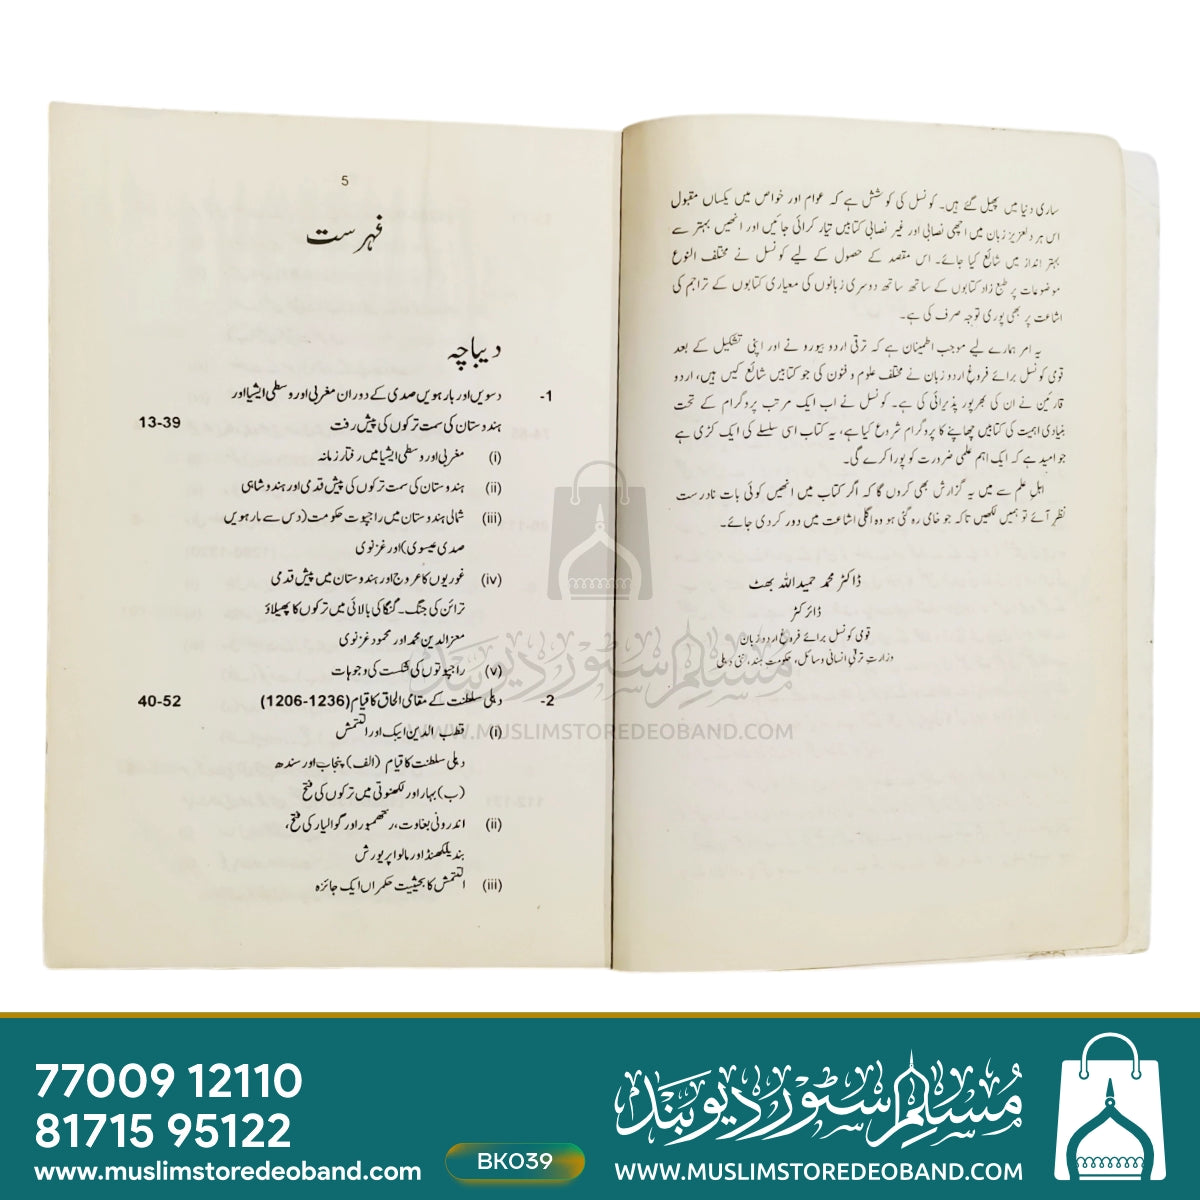 ساری دنیا میں پھیل گئے ہیں۔ کونسل کی کوشش ہے کہ عوام اور خواص میں یکساں مقبول
اس ہر دلعزیز زبان میں اچھی نصابی اور غیر نصابی کتابیں تیار کرائی جائیں اور انھیں بہتر سے
بہتر انداز میں شائع کیا جائے۔ اس مقصد کے حصول کے لیے کونسل نے مختلف النوع
موضوعات پر طبع زاد کتابوں کے ساتھ ساتھ دوسری زبانوں کی معیاری کتابوں کے تراجم کی
اشاعت پر بھی پوری توجہ صرف کی ہے۔
یہ امر ہمارے لیے موجب اطمینان ہے کہ ترقی اردو بیورو نے اور اپنی تشکیل کے بعد
قومی کونسل برائے فروغ اردو زبان نے مختلف علوم و فنون کی جو کتابیں شائع کیں ہیں، اردو
قارئین نے ان کی بھرپور پذیرائی کی ہے۔ کونسل نے اب ایک مرتب پروگرام کے تحت
بنیادی اہمیت کی کتابیں چھاپنے کا پروگرام شروع کیا ہے، یہ کتاب اسی سلسلے کی ایک کڑی ہے
جو امید ہے کہ ایک اہم علمی ضرورت کو پورا کرے گی۔
اہل علم سے میں یہ گزارش بھی کروں گا کہ اگر کتاب میں انھیں کوئی بات نادرست
نظر آئے تو ہمیں لکھیں تاکہ جو خامی رہ گئی ہو وہ اگلی اشاعت میں دور کردی جائے۔
ڈاکٹر محمد حمید اللہ بھٹ
ڈائرکٹر
قومی کونسل برائے فروغ اردو زبان
وزارت ترقی انسانی وسائل، حکومت ہند، نئی دہلی
5
فہرست
دیباچہ
1- دسویں اور بارہویں صدی کے دوران مغربی اور وسطی ایشیا اور
ہندوستان کی سمت ترکوں کی پیش رفت 13-39
(i) مغربی اور وسطی ایشیا میں رفتار زمانہ
(ii) ہندوستان کی سمت ترکوں کی پیش قدمی اور ہندو شاہی
(iii) شمالی ہندوستان میں راجپوت حکومت (دس سے بارہویں
صدی عیسوی) اور غزنوی
(iv) غوریوں کا عروج اور ہندوستان میں پیش قدمی
ترائن کی جنگ۔ گنگا کی بالائی میں ترکوں کا پھیلاؤ
معز الدین محمد اور محمود غزنوی
(v) راجپوتوں کی شکست کی وجوہات
2- دہلی سلطنت کے مقامی الحاق کا قیام (1206-1236) 40-52
(i) قطب الدین ایبک اور التتمش
دہلی سلطنت کا قیام (الف) پنجاب اور سندھ
(ب) بہار اور لکھنوتی میں ترکوں کی فتح
(ii) اندرونی بغاوت، رنتھمبور اور گوالیار کی فتح،
بندیلکھنڈ اور مالوا پر یورش
(iii) التتمش کا بحیثیت حکمراں ایک جائزہ
مسلم سٹور دیوبند
WWW.MUSLIMSTOREDEOBAND.COM
77009 12110
81715 95122
www.muslimstoredeoband.com
BK039
مسلم سٹور دیوبند
WWW.MUSLIMSTOREDEOBAND.COM